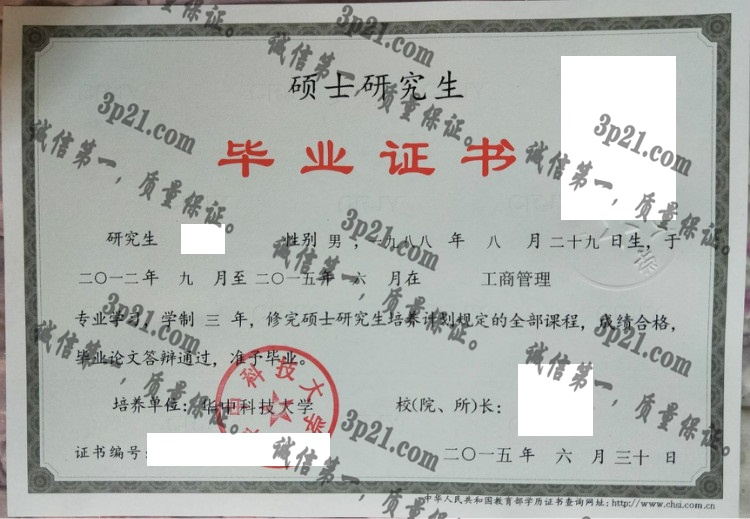 硕士研究生
毕业证书
研究生 性别 男，一九八八 年 八 月二十九日生，于
二〇一二年 九 月至二〇一五年 六 月在 工商管理
专业学习，学制 三 年，修完硕士研究生培养计划规定的全部课程，成绩合格，
毕业论文答辩通过，准予毕业。
培养单位：华中科技大学 校(院、所)长：
证书编号： 二〇一五年 六 月三十日
中华人民共和国教育部学历证书查询网址：http://www.chsi.com.cn
3p21.com
诚信第一，质量保证。
3p21.com
诚信第一，质量保证。
3p21.com
诚信第一，质量保证。
3p21.com
诚信第一，质量保证。
3p21.com
诚信第一，质量保证。
3p21.com
诚信第一，质量保证。
3p21.com
诚信第一，质量保证。
3p21.com
诚信第一，质量保证。